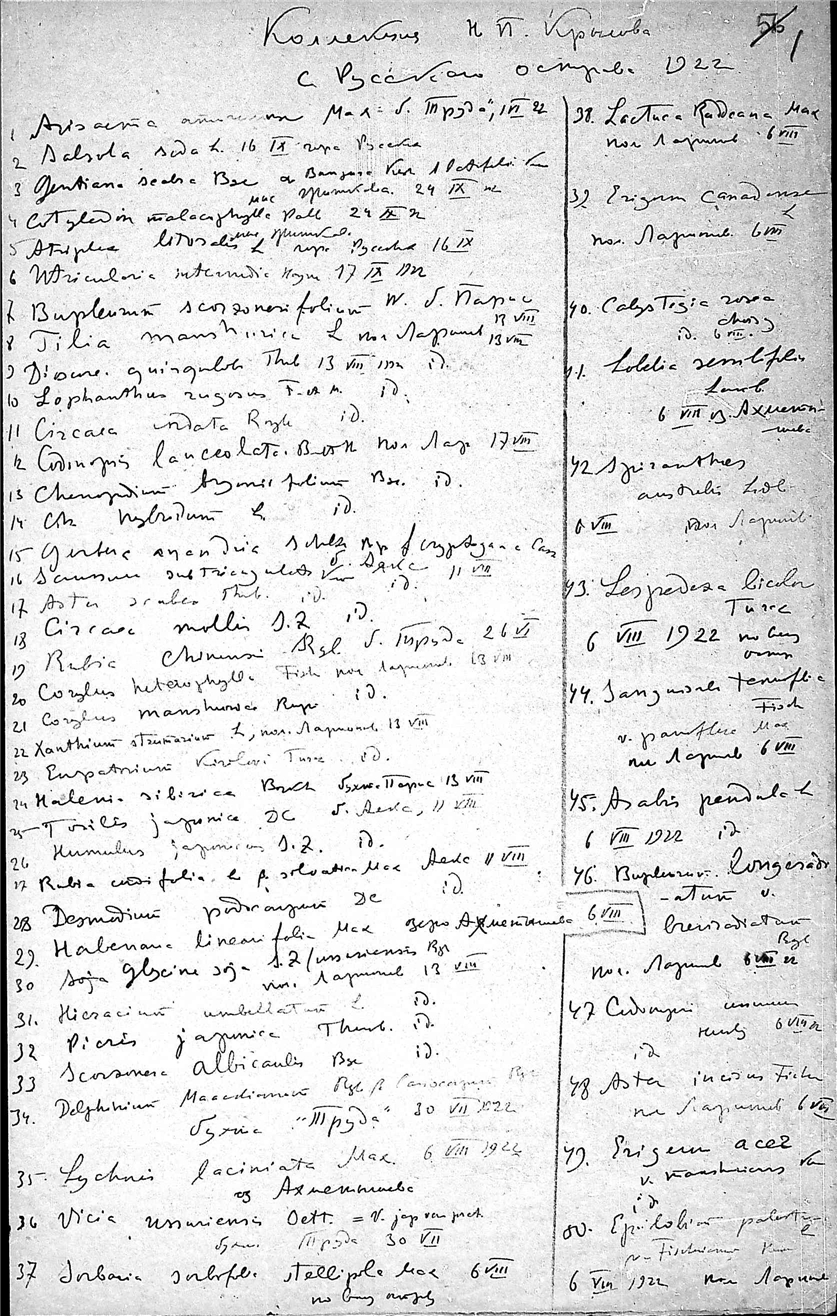 Коллекция Н П. Крылова
56
1
с Русского острова 1922
1 Arisaema Max б. "Труда", 1 VI 22
2 Salsola soda L. 16 IX гора Русска
3 Gentiana scabra Bge α Bungeana
24 IX 22
4 Cotyledon malacophylla Pall 24 IX 22
5 Atriplex litoralis L гора Русска 16 IX
6 Utricularia intermedia Hayne 17 IX 1922
7 Bupleurum scorzonerifolium W. б. Парис
13 VIII
8 Tilia manshurica пол. Ларионов 13 VIII
9 Dioscor. quinqueloba Thb 13 VIII 1922 id.
10 Lophanthus rugosus F. et M. id.
11 Circaea cordata Royle id.
12 Codonopsis lanceolata. B. et H пол Лар 17 VIII
13 Chenopodium Bge. id.
14 Ch. hybridum L. id.
15 Gerbera anandria Schltz
16 Saussurea subtriangulata б. Аякс 11 VIII
17 Aster scaber Thb. id. id.
18 Circaea mollis S.Z id.
19 Rubia chinensis Rgl б. Труда 26 VI
20 Corylus heterophylla Fisch пол Ларионов. 13 VIII
21 Corylus manshurica Rupr id.
22 Xanthium strumarium L, пол. Ларионов. 13 VIII
23 Eupatorium Kirilowi Turcz. id.
24 Halenia sibirica Borkh бухта Парис 13 VIII
25 Torilis japonica DC б. Аякс, 11 VIII
26 Humulus japonicus S.Z. id.
27 Rubia cordifolia L β. sylvatica Max Аякс 11 VIII
28 Desmodium podocarpum DC id.
29. Habenaria linearifolia Max озеро Ахметьтева 6 VIII
30 Soja Glycine soja S.Z / ussuriensis Rgl
пол. Ларионов 13 VIII
31. Hieracium umbellatum L id.
32 Picris japonica Thunb. id.
33 Scorzonera albicaulis Bge id.
34. Delphinium Maackianum Rgl β
бухта "Труда" 30 VII 1922
35. Lychnis laciniata Max. 6 VIII 1922
оз Ахметьтева
36 Vicia ussuriensis Oett. = V. jap
бухт. Труда 30 VII
37 Sorbaria sorbifolia stellipila Max 6 VIII
38. Lactuca Raddeana Max
пол Ларионов 6 VIII
39 Erigeron canadense
L
пол. Ларионов. 6 VIII
40. Calystegia rosea
id. 6 VIII.
41. Lobelia sessilifolia
Lamb
6 VIII оз. Ахметьтева
42 Spiranthes
australis Lindl.
6 VIII пол Ларионов.
43. Lespedeza bicolor
Turcz
6 VIII 1922
44. Sanguisorba tenuifolia
Fisch
v. parviflora Max
пол Ларионов 6 VIII
45. Arabis pendula L
6 VIII 1922 id
46. Bupleurum. longeradi
-atum v.
breviradiatum
Rgl
пол. Ларионов 6 VIII 22
47 Codonopsis ussuriensis
6 VIII 22
id
48 Aster incisus Fisch
пол Ларионов 6 VIII
49. Erigeron acer
v. manshuricus
id
50. Epilobium palustre
L
v. Fischerianum
6 VIII 1922 пол Ларионов